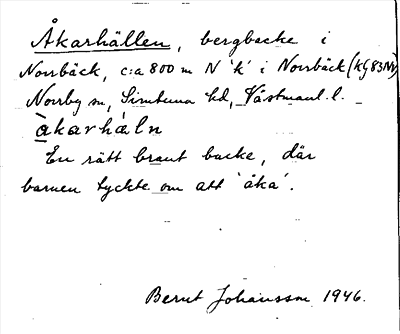 Åkarhällen, bergbacke i
Norrbäck, c:a 800 m N 'k' i Norrbäck (kG 83NV)
Norrby sn, Simtuna hd, Västmanl. l.
àkarháln
En rätt brant backe, där
barnen tyckte om att 'åka'.
Bernt Johansson 1946.